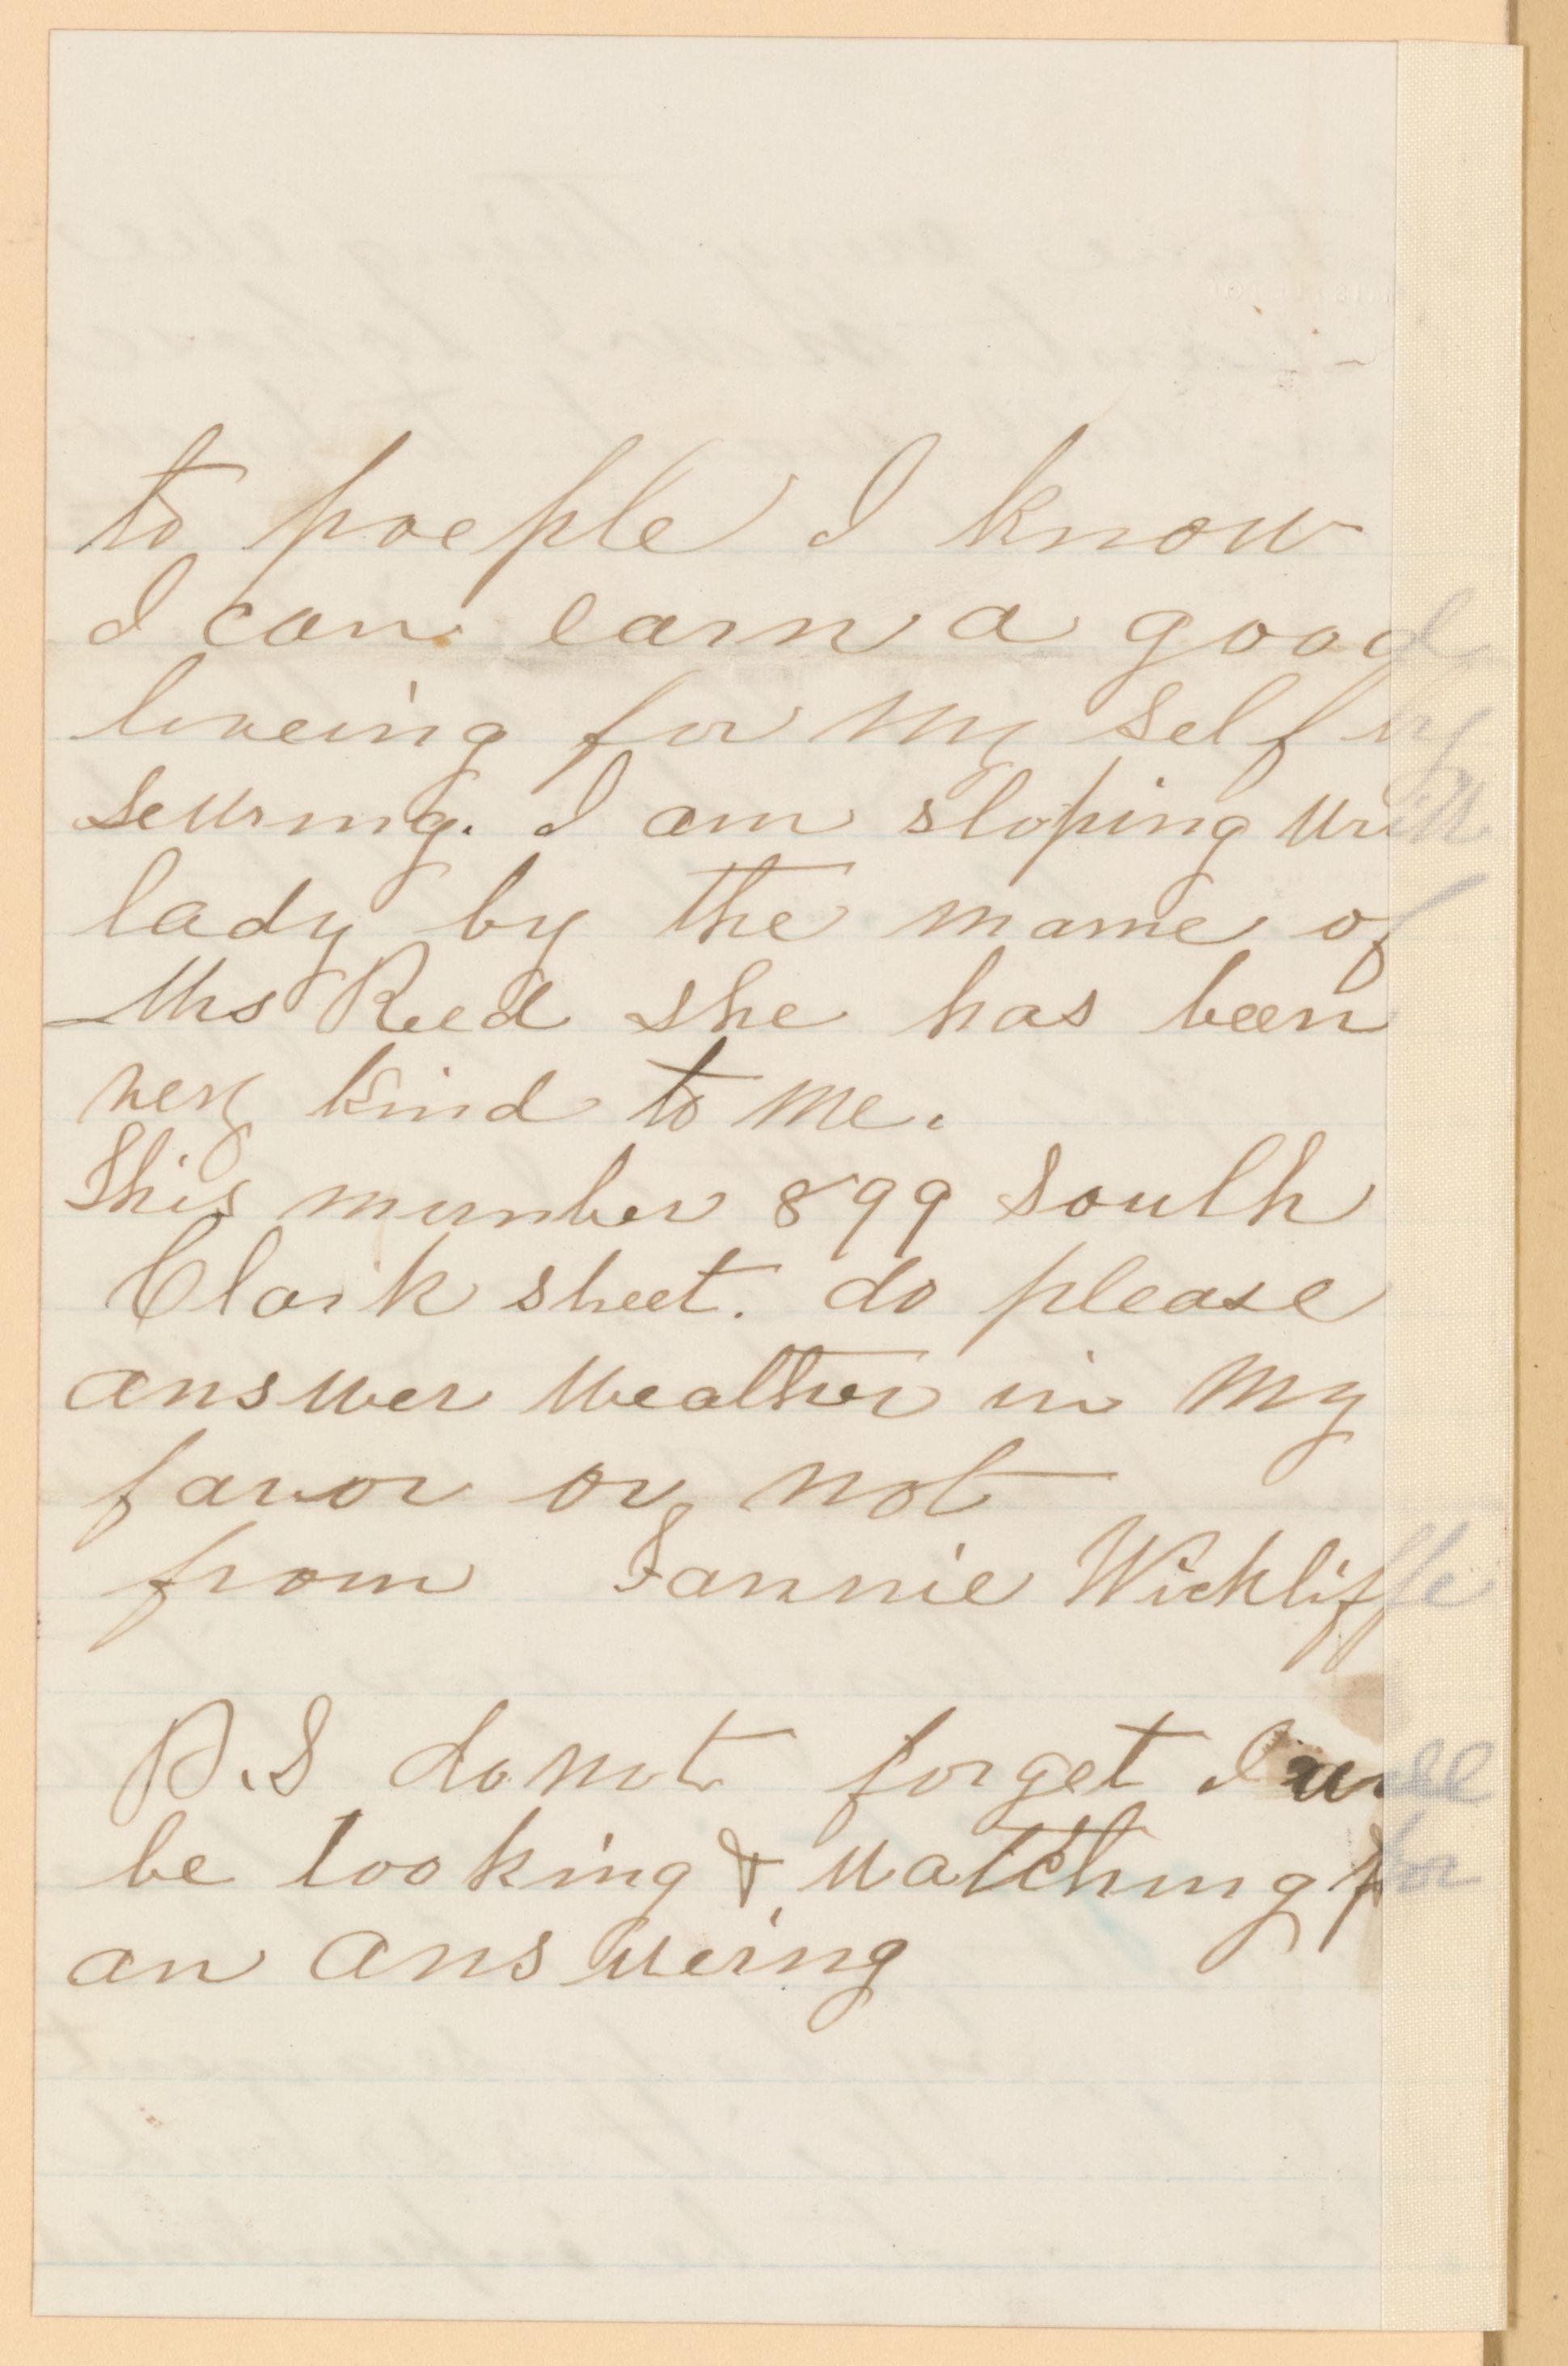 to poeple I know
I can earn a good
liveing for my self by
sewing. I am stoping with
lady by the name of
Mrs Reed she has been
very kind to me.
This number 899 South
Clark street. do please
answer weather in my
favor or not
from Fannie Wickliffe
P.S do not forget I will
be looking & watching for
an answering